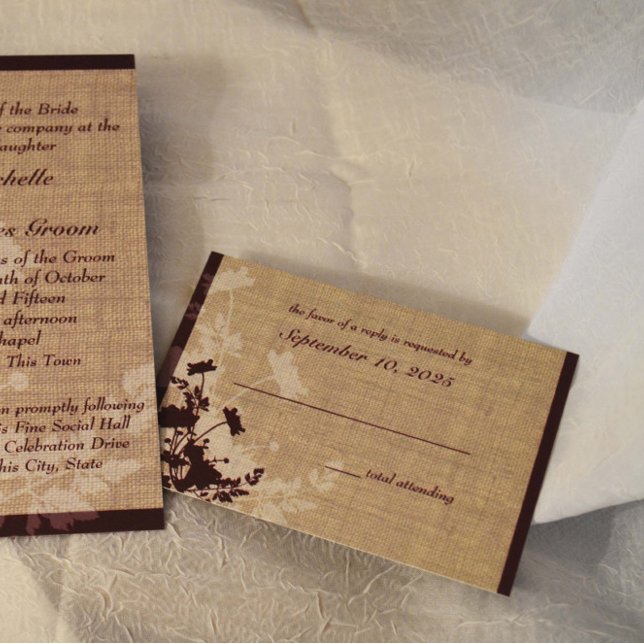 of the Bride
company at the
daughter
chelle
es Groom
of the Groom
of October
Fifteen
afternoon
Chapel
This Town
promptly following
Fine Social Hall
Celebration Drive
City, State
the favor of a reply is requested by
September 10, 2025
total attending